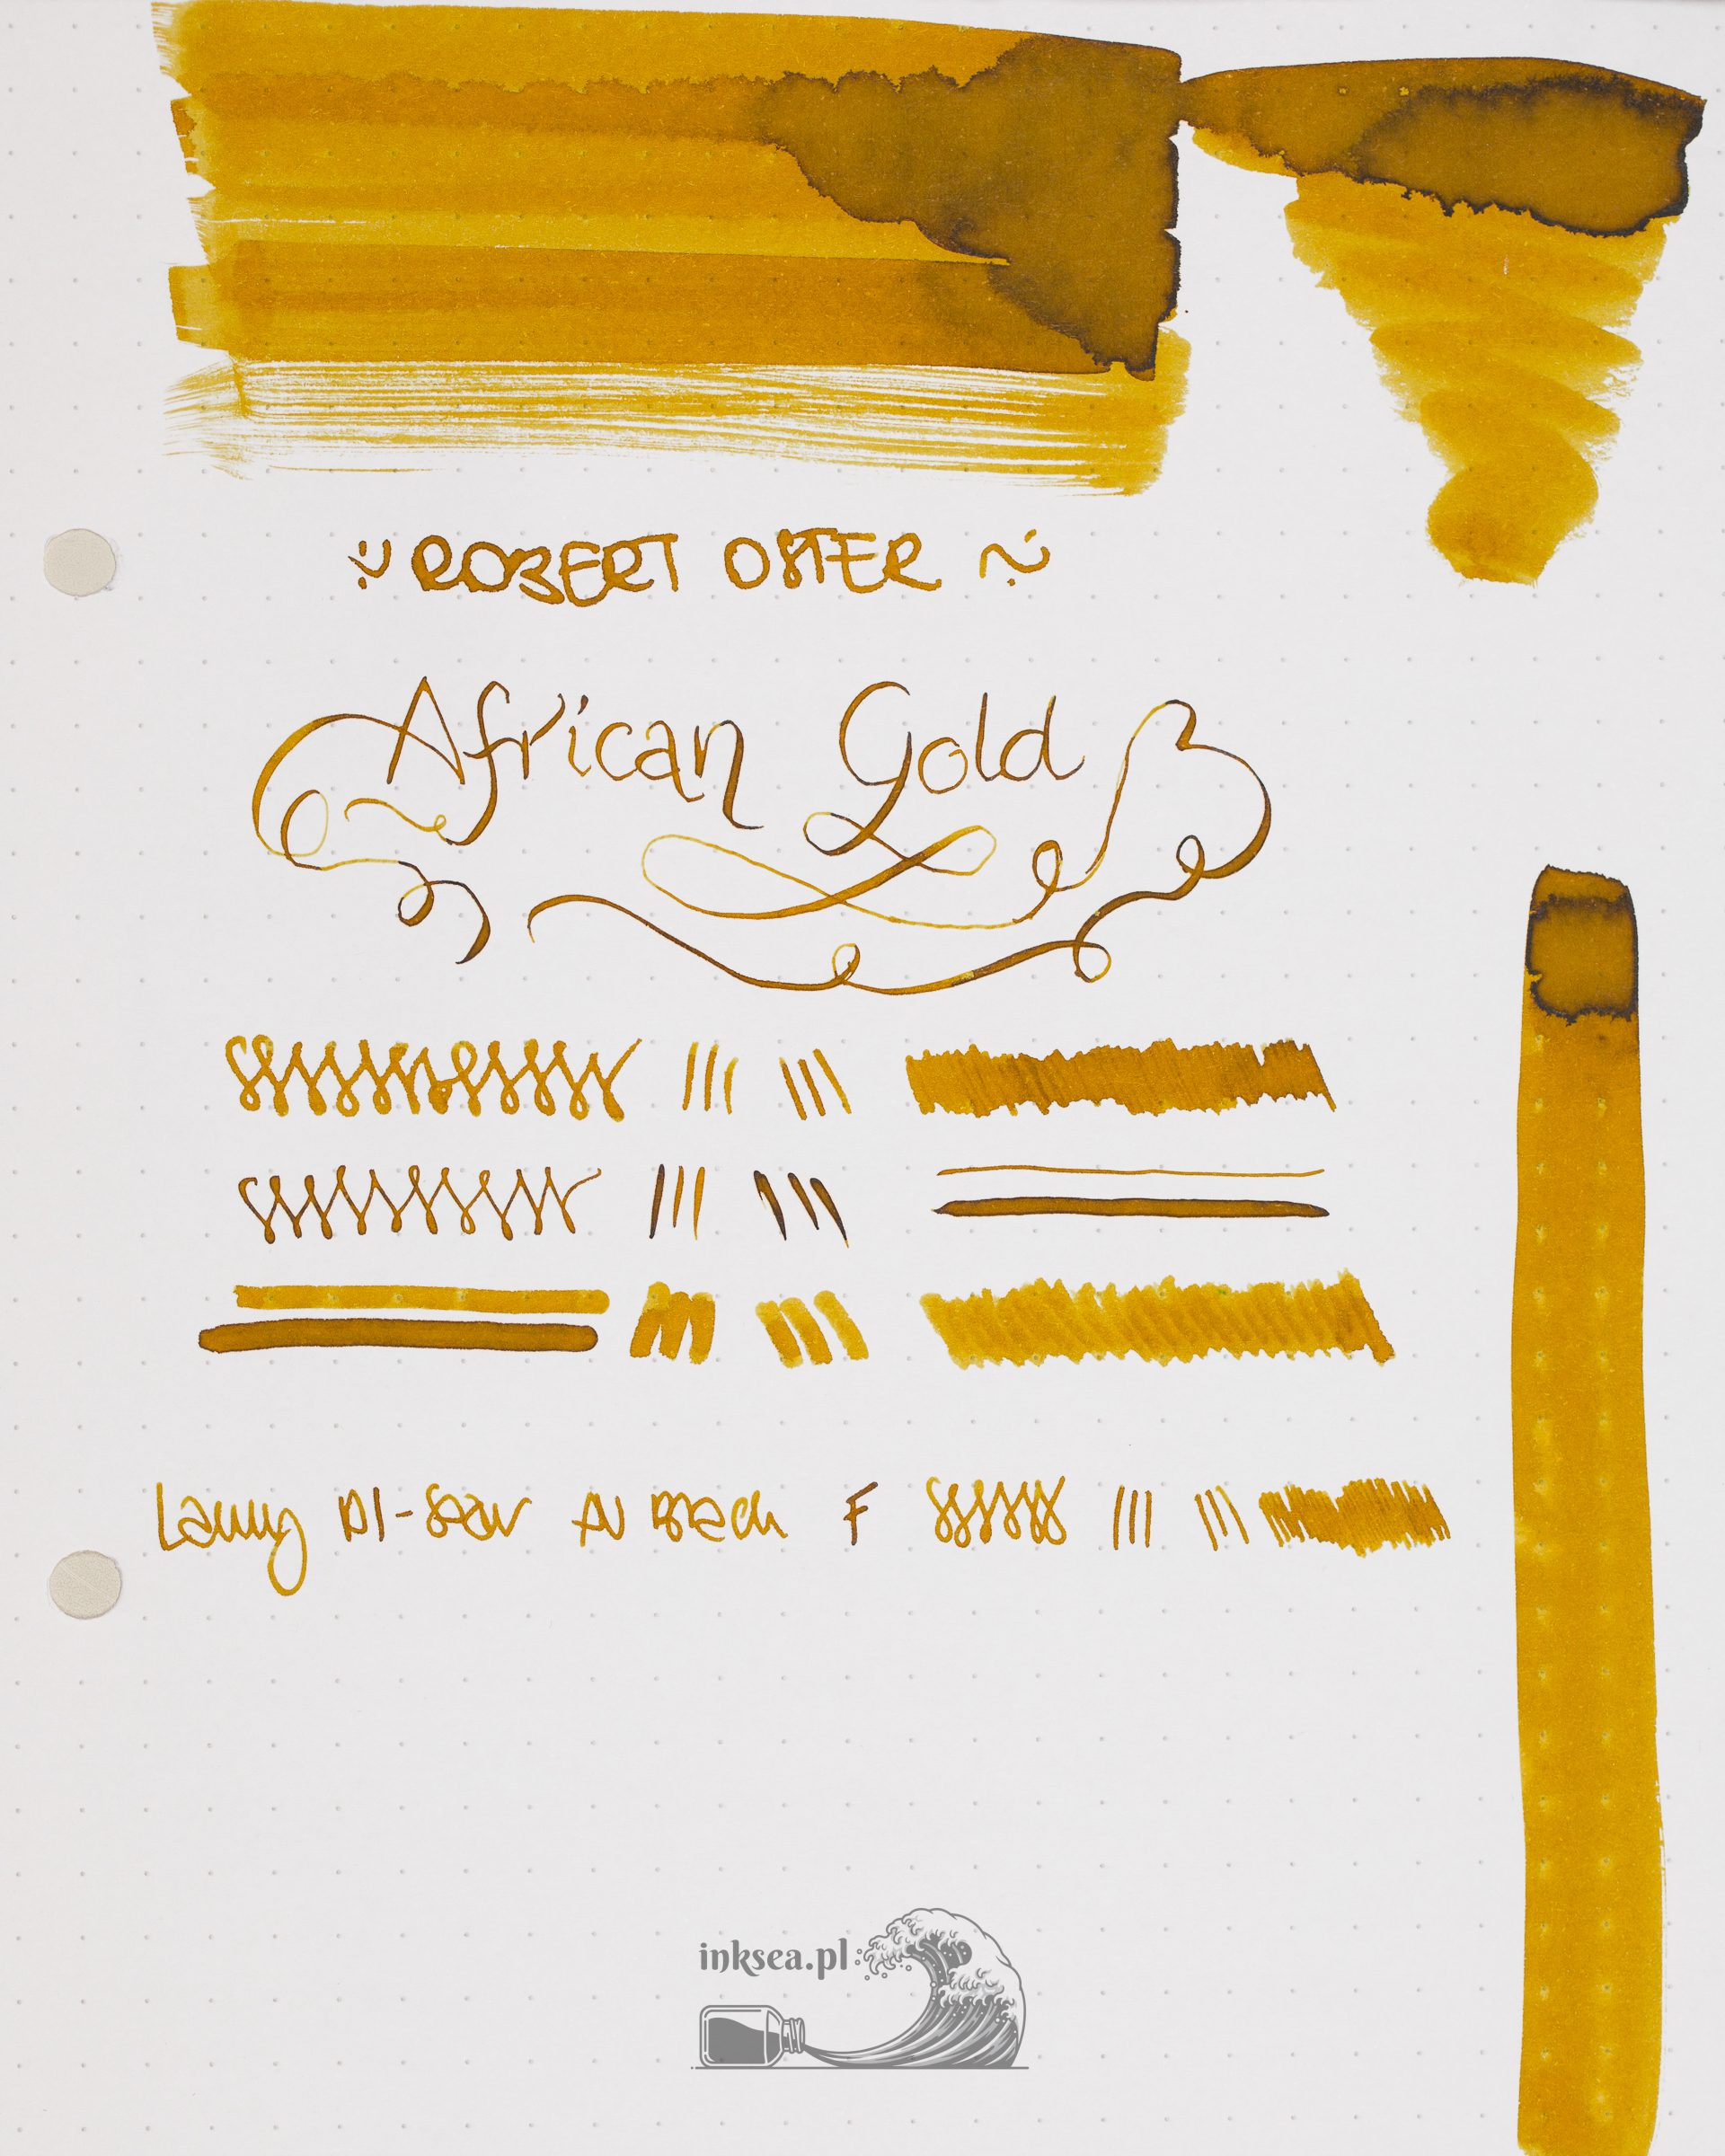 ROBERT OSTER
African Gold
Lamy Al-Star Au Black F
inksea.pl